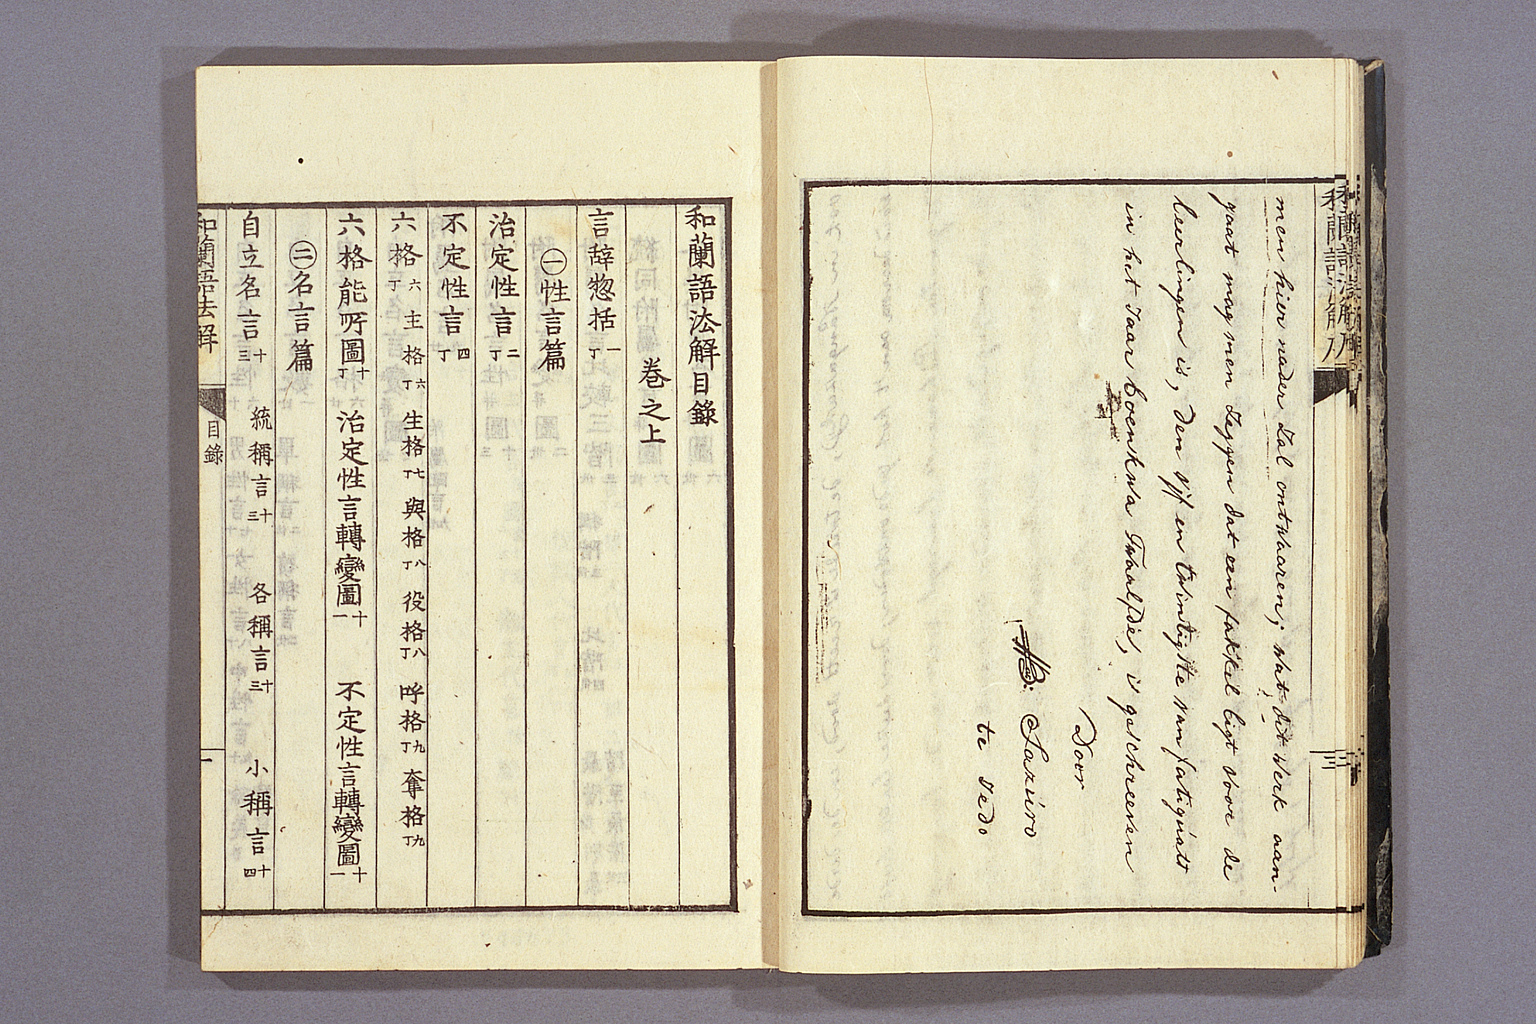 men hier nader zal ontwaaren; wat dit werk aan-
gaat mag men zeggen dat een fakkel ligt voor de
leerlingen is, den vijf en twintigste van
in het Jaar Boenkwa Twaalfde, is geschreeven
Door
te Jedo
和蘭語法解目錄
卷之上
言辞惣括 一丁
㊀性言篇
治定性言 二丁
不定性言 四丁
六格 六丁 主格 六丁 生格 七丁 與格 八丁 役格 八丁 呼格 九丁 奪格 九丁
六格能所圖 十丁 治定性言轉變圖 十一 不定性言轉變圖 十一
㊁名言篇
自立名言 十三 統稱言 十三 各稱言 十三 小稱言 十四
和蘭語法解 目錄 一